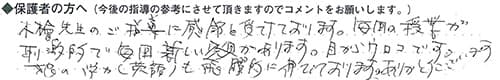 ◆保護者の方へ(今後の指導の参考にさせて頂きますのでコメントをお願いします。)
先生のご指導に感銘を受けております。毎回の授業が
刺激的で毎回新しい発見があります。目からウロコです。
の学力(英語)も飛躍的に伸びております。ありがとうございます